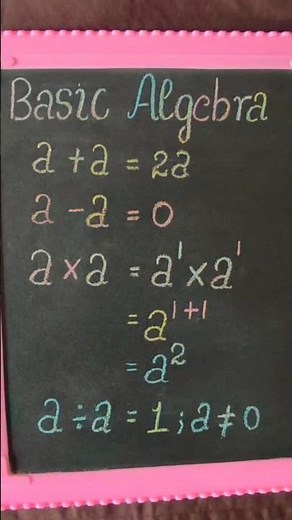 Basic Algebra
a + a = 2a
a - a = 0
a × a = a¹ × a¹
= a¹⁺¹
= a²
a ÷ a = 1 ; a ≠ 0